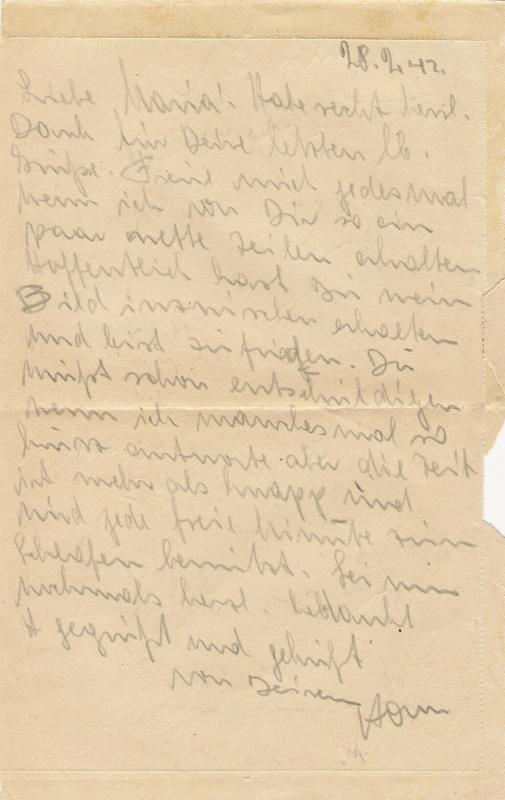 28.2.42.
Liebe Maria! Habe recht herzl.
Dank für Deine letzten lb.
Grüße. Freue mich jedesmal
wenn ich von Dir so ein
paar nette Zeilen erhalten
Hoffentlich hast Du mein
Bild inzwischen erhalten
und bist zufrieden. Du
mußt schon entschuldigen
wenn ich manchesmal so
kurz antworte aber die Zeit
ist mehr als knapp und
wird jede freie Minute zum
Schlafen benützt. Sei nun
nochmals herzl. bedankt
+ gegrüßt und geküßt
von Deinem